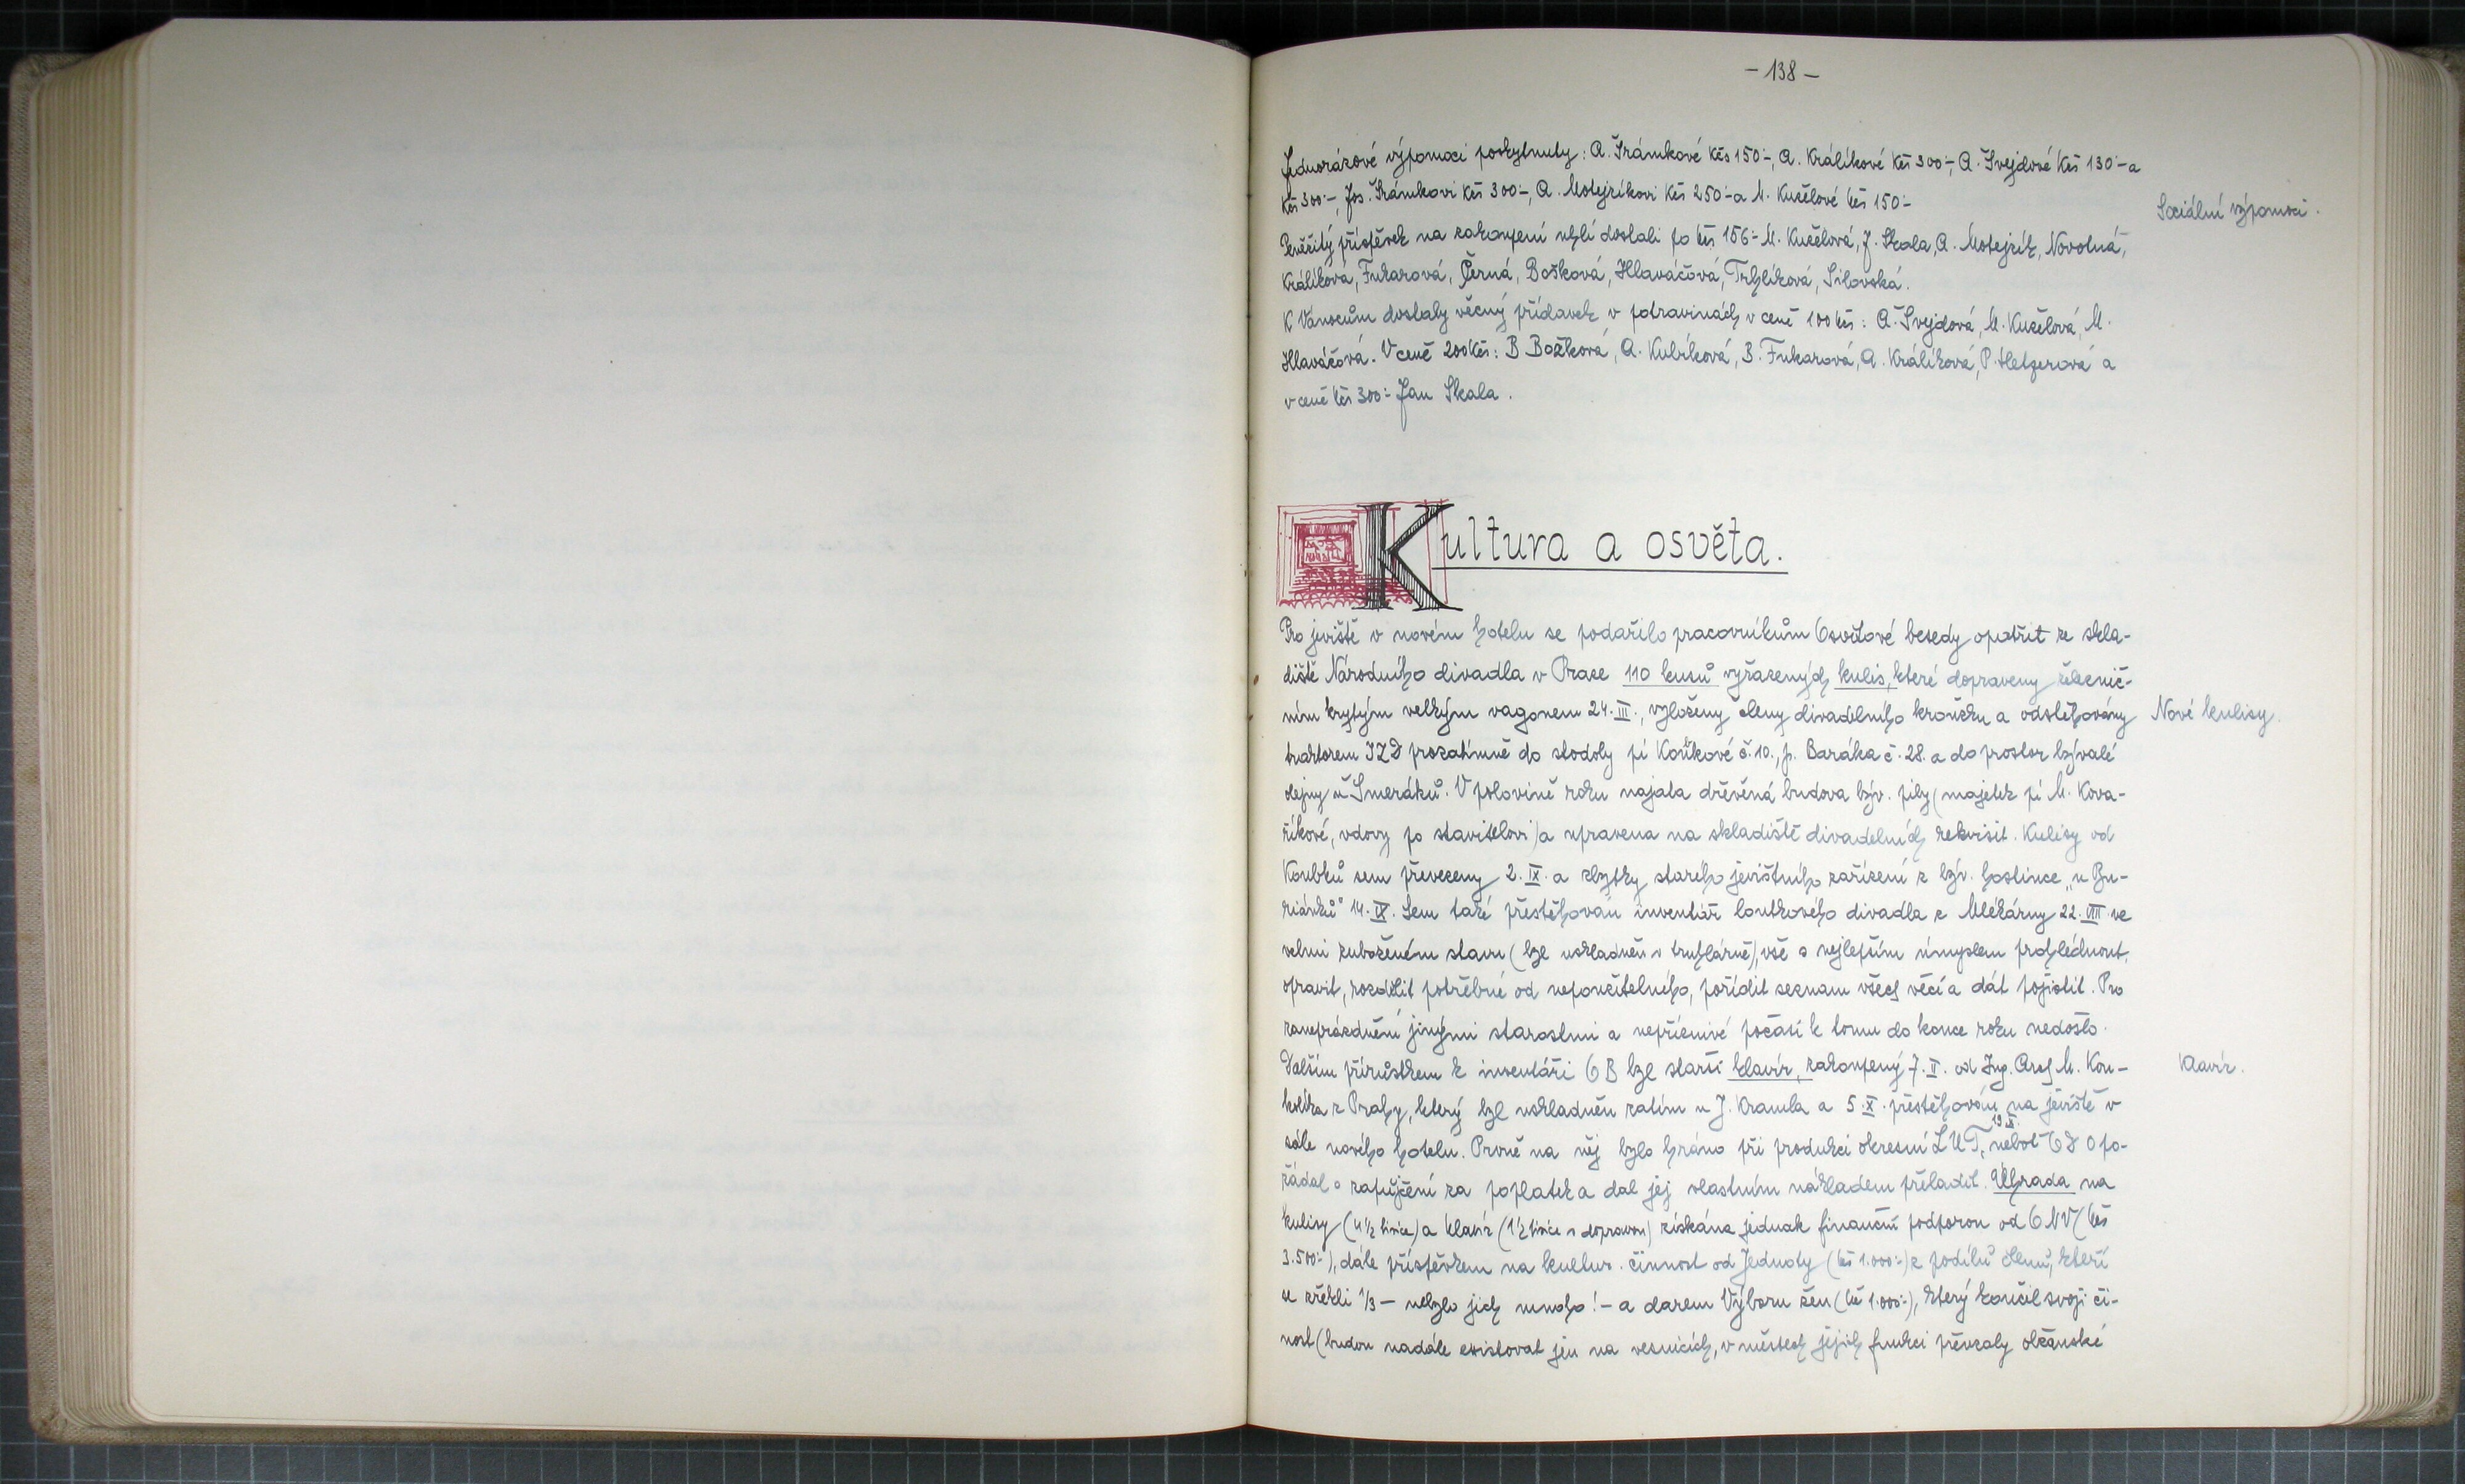 - 138 -
Jednorázové výpomoci poskytnuty: A. Šrámkové Kčs 150·-, A. Králíkové Kčs 300·-, A. Švejdové Kčs 130·- a
Kčs 300·-, Jos. Šrámkovi Kčs 300·-, A. Motejzíkovi Kčs 250·- a M. Kučelové Kčs 150·-
Sociální výpomoci.
Peněžitý příspěvek na zakoupení uhlí dostali po Kčs 156·- M. Kučelová, J. Skala, A. Motejzík, Novotná,
Králíková, Fukarová, Černá, Bošková, Hlaváčová, Trhlíková, Silovská.
K Vánocům dostaly věcný přídavek v potravinách v ceně 100 Kčs: A. Švejdová, M. Kučelová, M.
Hlaváčová. V ceně 200 Kčs: B. Božková, A. Kubíková, B. Fukarová, A. Králíková, P. Helzerová a
v ceně Kčs 300·- Jan Skala.
Kultura a osvěta.
Pro jeviště v novém hotelu se podařilo pracovníkům Osvětové besedy opatřit ze skla-
diště Národního divadla v Praze 110 kusů vyřazených kulis, které dopraveny železnič-
ním krytým velkým vagonem 24. III., vyloženy členy divadelního kroužku a odstěhovány
Nové kulisy.
traktorem JZD prozatímně do stodoly pí Koubkové č. 10., p. Baráka č. 28. a do prostor bývalé
olejny u Šmeráků. V polovině roku najata dřevěná budova býv. pily (majetek pí M. Kova-
říkové, vdovy po staviteloví) a upravena na skladiště divadelních rekvisit. Kulisy od
Koubků sem převezeny 2. IX. a zbytky starého jevištního zařízení z býv. hostince „u Bu-
riánků" 14. IX. Sem také přestěhován inventář loutkového divadla z Mlékárny 22. VIII. ve
velmi zuboženém stavu (byl uskladněn v truhlárně), vše s nejlepším úmyslem prohlédnout,
opravit, rozdělit potřebné od nepoužitelného, pořídit seznam všech věcí a dát pojistit. Pro
zaneprázdnění jinými starostmi a nepříznivé počasí k tomu do konce roku nedošlo.
Dalším přírůstkem k inventáři OB byl starší klavír, zakoupený 7. V. od Ing. Arch M. Kou-
Klavír.
kolíka z Prahy, který byl uskladněn zatím u J. Kramla a 5. X. přestěhován na jeviště v
sále nového hotelu. Prvně na něj bylo hráno při produkci okresní LUT, neboť OD o po-
řádal o zapůjčení za poplatek a dal jej vlastním nákladem přeladit. Úhrada na
kulisy (4 ½ tisíce) a klavír (1 ½ tisíce s dopravou) získána jednak finanční podporou od ONV (Kčs
3.500·-), dále příspěvkem na kultur. činnost od Jednoty (Kčs 1.000·-) z podílů členů, kteří
se zřekli 1/3 – nebylo jich mnoho! – a darem Výboru žen (Kčs 1.000·-), který končil svoji či-
nost (budou nadále existovat jen na vesnicích, v městech jejich funkci převzaly občanské